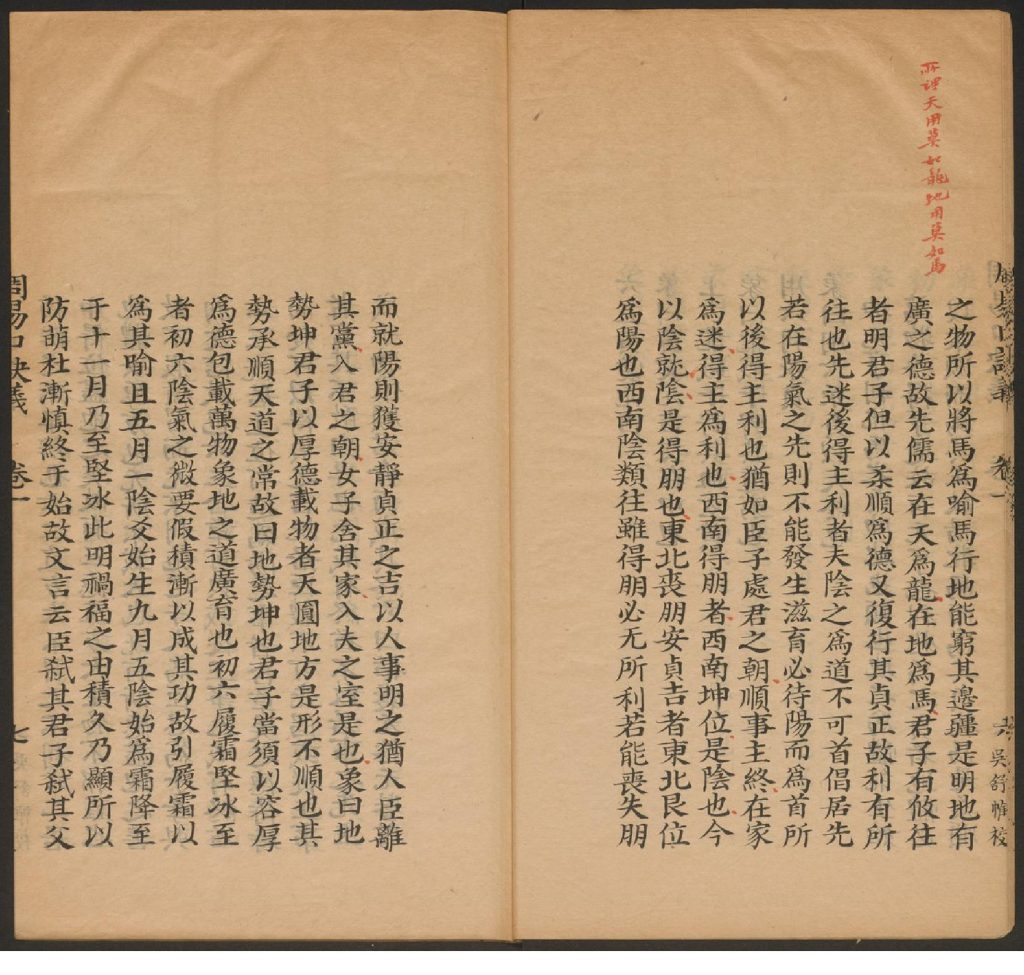 所謂天用莫如龍地用莫如馬
周易口訣義 卷一 六 吳舒帷校
之物所以將馬為喻馬行地能窮其邊疆是明地有
廣之德故先儒云在天為龍在地為馬君子有攸往
者明君子但以柔順為德又復行其貞正故利有所
往也先迷後得主利者夫陰之為道不可首倡居先
若在陽氣之先則不能發生滋育必待陽而為首所
以後得主利也猶如臣子處君之朝順事主終在家
為迷得主為利也西南得朋者西南坤位是陰也今
以陰就陰是得朋也東北喪朋安貞吉者東北艮位
為陽也西南陰類往雖得朋必无所利若能喪失朋
而就陽則獲安靜貞正之吉以人事明之猶人臣離
其黨入君之朝女子舍其家入夫之室是也象曰地
勢坤君子以厚德載物者天圓地方是形不順也其
勢承順天道之常故曰地勢坤也君子當須以容厚
為德包載萬物象地之道廣育也初六履霜堅冰至
者初六陰氣之微要假積漸以成其功故引履霜以
為其喻且五月一陰爻始生九月五陰始為霜降至
于十一月乃至堅冰此明禍福之由積久乃顯所以
防萌杜漸慎終于始故文言云臣弒其君子弒其父
周易口訣義 卷一 七